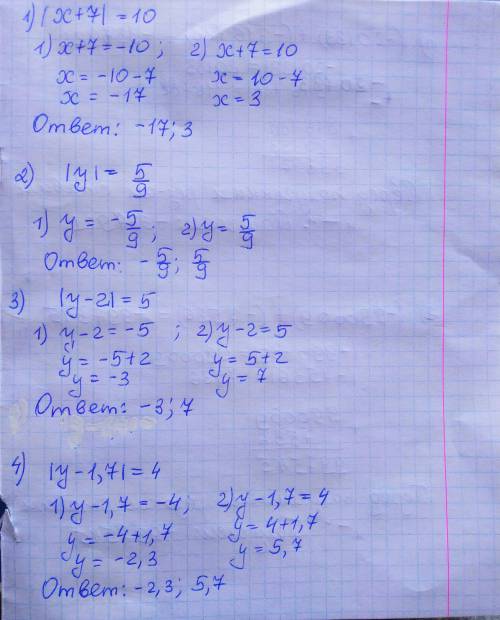 1) |x+7| = 10
1) x+7=-10; 2) x+7=10
x=-10-7 x=10-7
x=-17 x=3
Ответ: -17; 3
2) |y| = 5/9
1) y = -5/9; 2) y = 5/9
Ответ: -5/9; 5/9
3) |y-2| = 5
1) y-2=-5; 2) y-2=5
y=-5+2 y=5+2
y=-3 y=7
Ответ: -3; 7
4) |y-1,7| = 4
1) y-1,7=-4; 2) y-1,7=4
y=-4+1,7 y=4+1,7
y=-2,3 y=5,7
Ответ: -2,3; 5,7